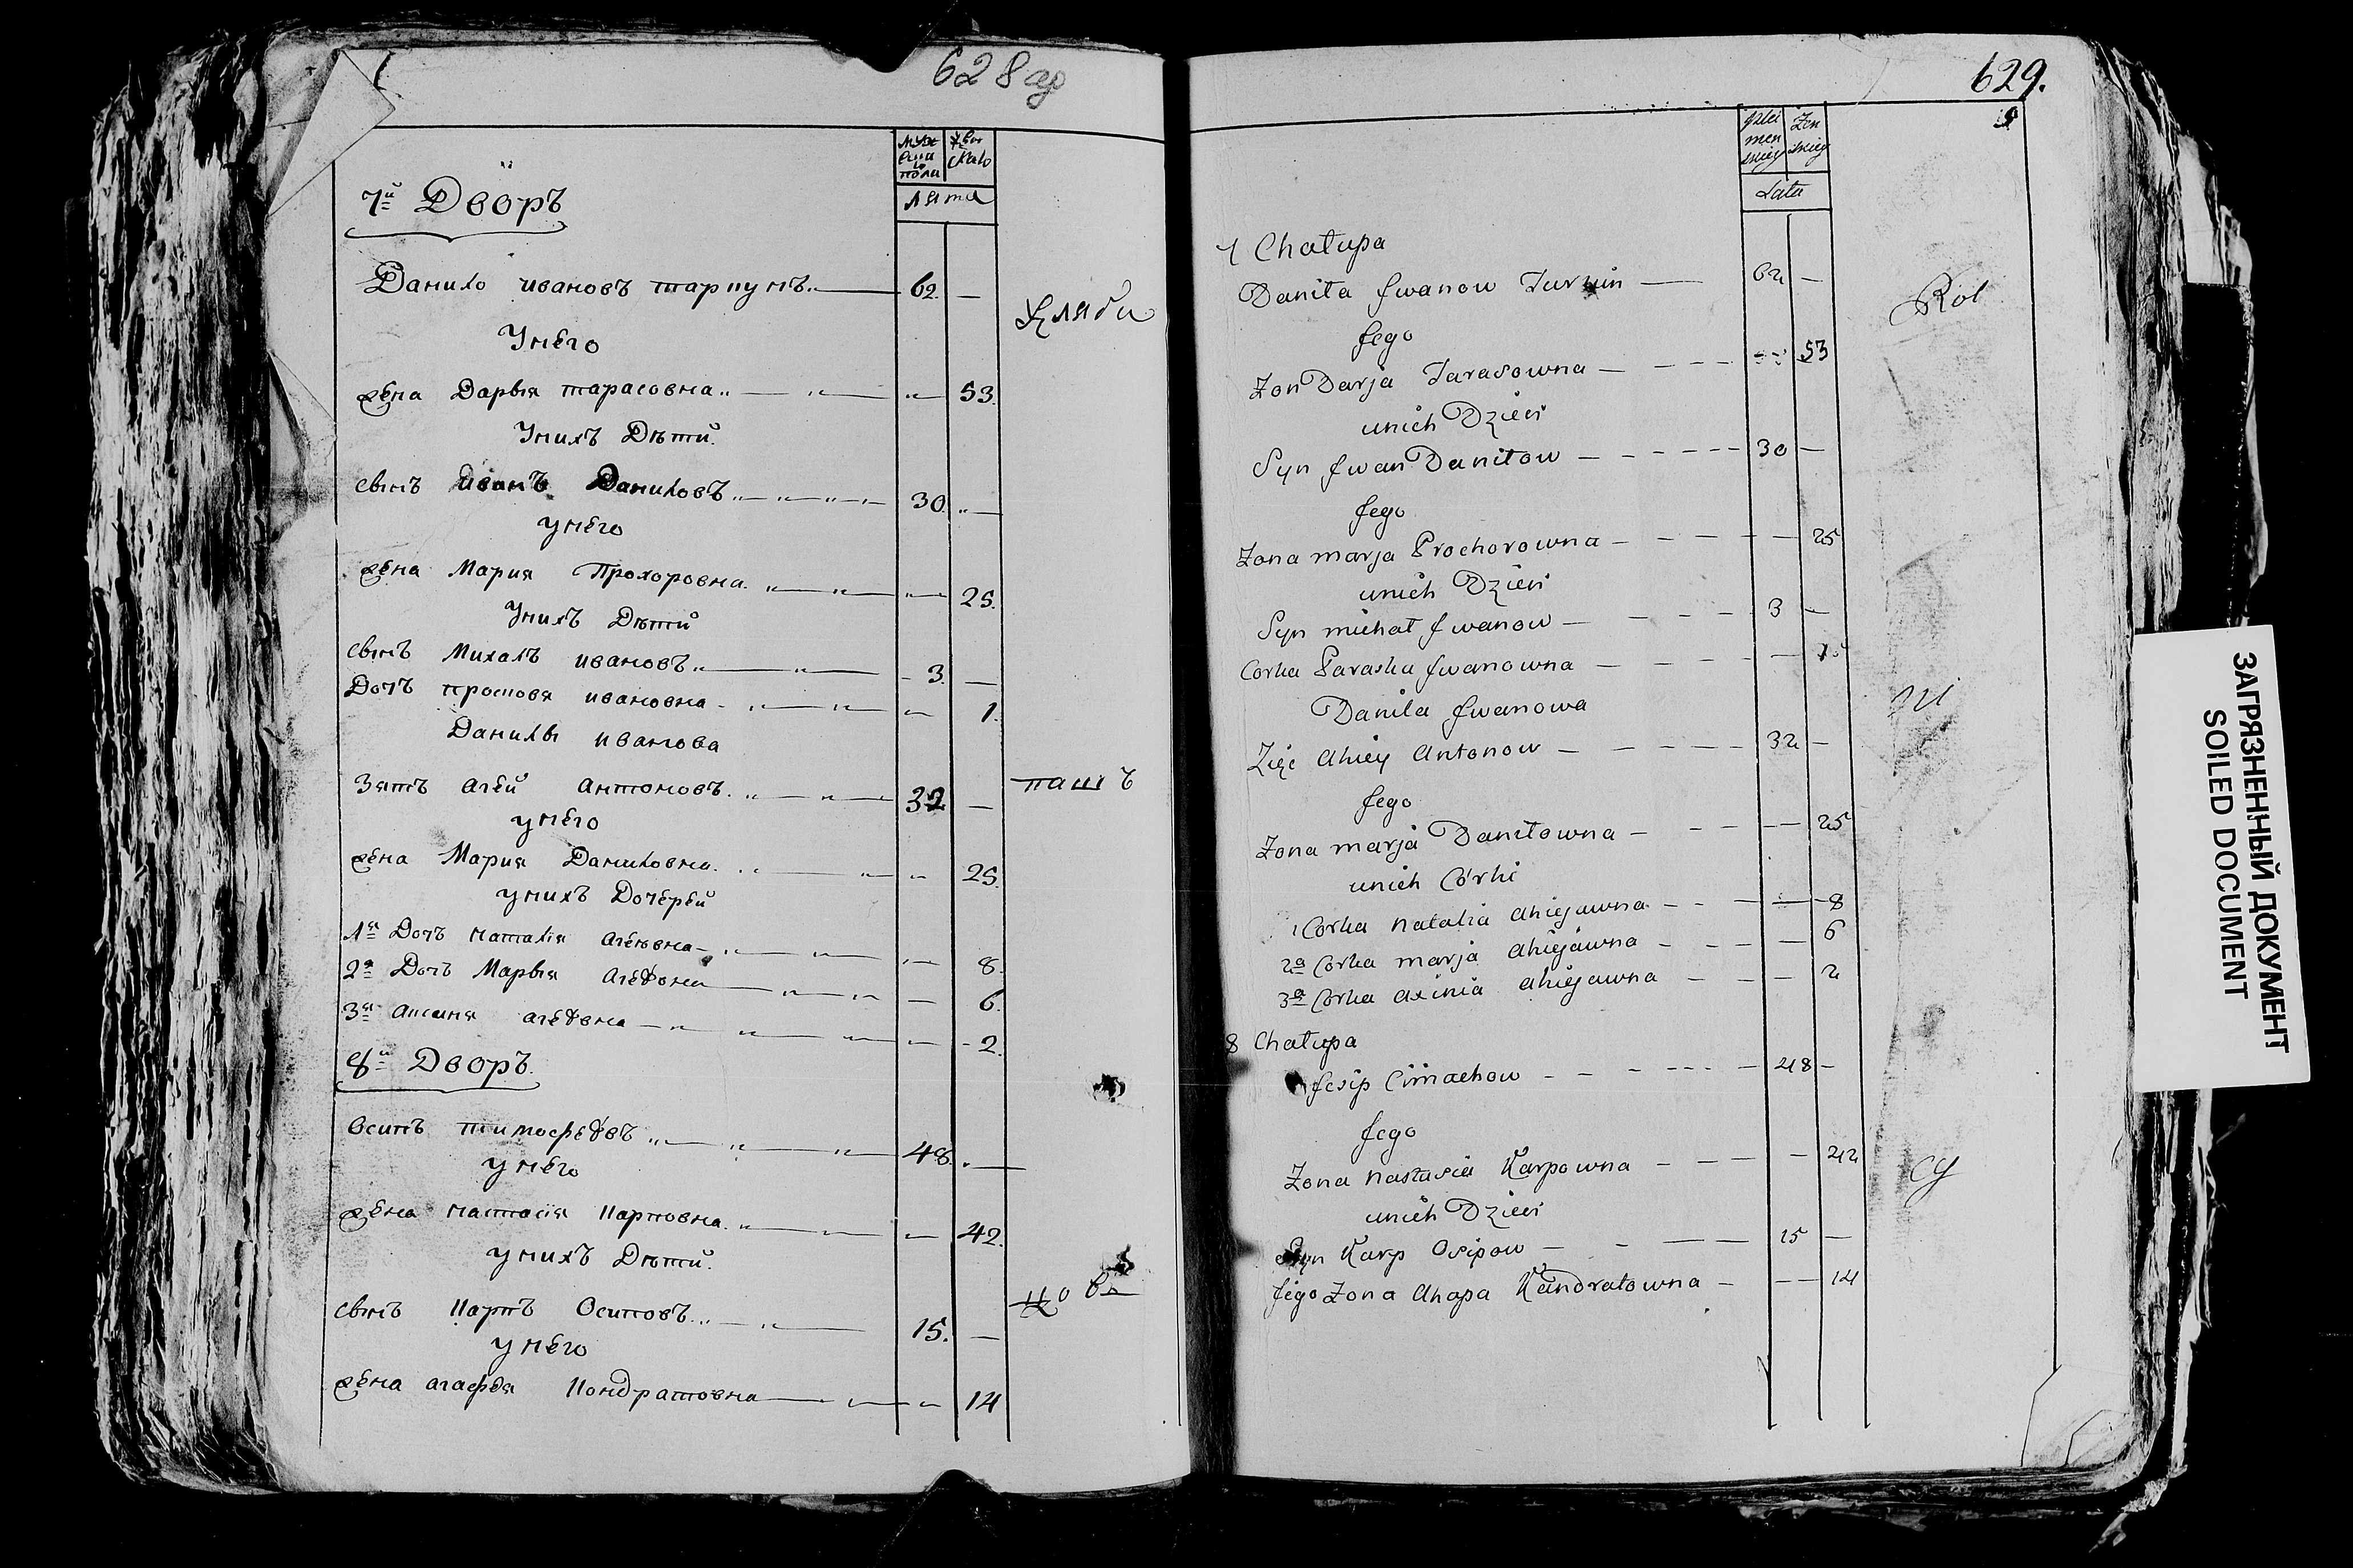 628 об
мужеска полу
женска
лята
7й Дворъ
Данило ивановъ тарпунъ 62
Хляби
Унего
жена Дарья тарасовна 53
Унихъ Дѣти
сынъ иванъ Даниловъ 30
унего
жена Мария Прохоровна 25
Унихъ Дѣти
сынъ Михалъ ивановъ 3
Дочъ просповя ивановна 1
Данилы иванова
Зять агей антоновъ 32
пашъ
унего
жена Мария Даниловна 25
унихъ Дочерей
1я Дочъ наталія агеювна 8
2я Дочъ Марья агеевна 6
3я аксиня агеевна 2
8й Дворъ
Осипъ тимофеевъ 48
унего
жена настасія карповна 42
унихъ Дѣти
сынъ карпъ Осиповъ 15
унего
жена агафея кондратовна 14
629.
Lata
7 Chałupa
Daniła Jwanow 62
Rol
Jego
Zon Darja Tarasowna 53
unich Dzieci
Syn Jwan Daniłow 30
Jego
Zona marja Prochorowna 25
unich Dzieci
Syn michał Jwanow 3
Corka Paraska Jwanowna
Daniła Jwanowa
ni
Zięc Ahiey Antonow 32
Jego
Zona marja Daniłowna 25
unich Córki
1 Corka Natalia ahiejawna 8
2a Corka marja ahiejawna 6
3a Corka axinia ahiejawna 2
8 Chałupa
Jesip Cimachow 48
Jego
Zona Nastasia Karpowna 42
cy
unich Dzieci
Syn Karp Osipow 15
Jego Zona Ahapa Kandratowna 14
ЗАГРЯЗНЕННЫЙ ДОКУМЕНТ
SOILED DOCUMENT